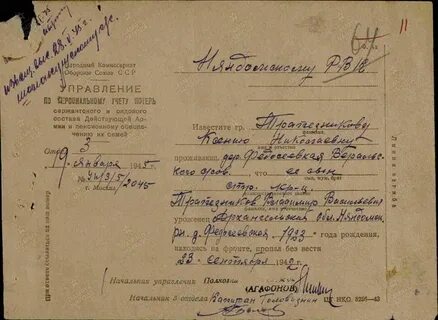 11
извещ. выс. 28.V.45 г.
Няндомскому РВК
Народный Комиссариат
Обороны Союза ССР
УПРАВЛЕНИЕ
ПО ПЕРСОНАЛЬНОМУ УЧЕТУ ПОТЕРЬ
сержантского и рядового
состава Действующей Ар-
мии и пенсионному обеспе-
чению их семей
Отдел 3
19 января 1945 г.
№ 3/5/2045
г. Москва
При ответе ссылаться на наш номер
Известите гр. Трапезникову
Ксению Николаевну
проживающ. дер. Федосеевка
ского с/сов. что ее сын
стр. кр-ц
Трапезников Владимир Васильевич
уроженец Архангельской обл. Няндомск.
рн. д. Федосеевская 1923 года рождения,
находясь на фронте, пропал без вести
23 сентября 1942 г.
Начальник управления Полковн
(АГАФОНОВ)
Начальник 3 отдела Капитан Головизнин
ЦТ НКО. 5256—43
Линия отреза